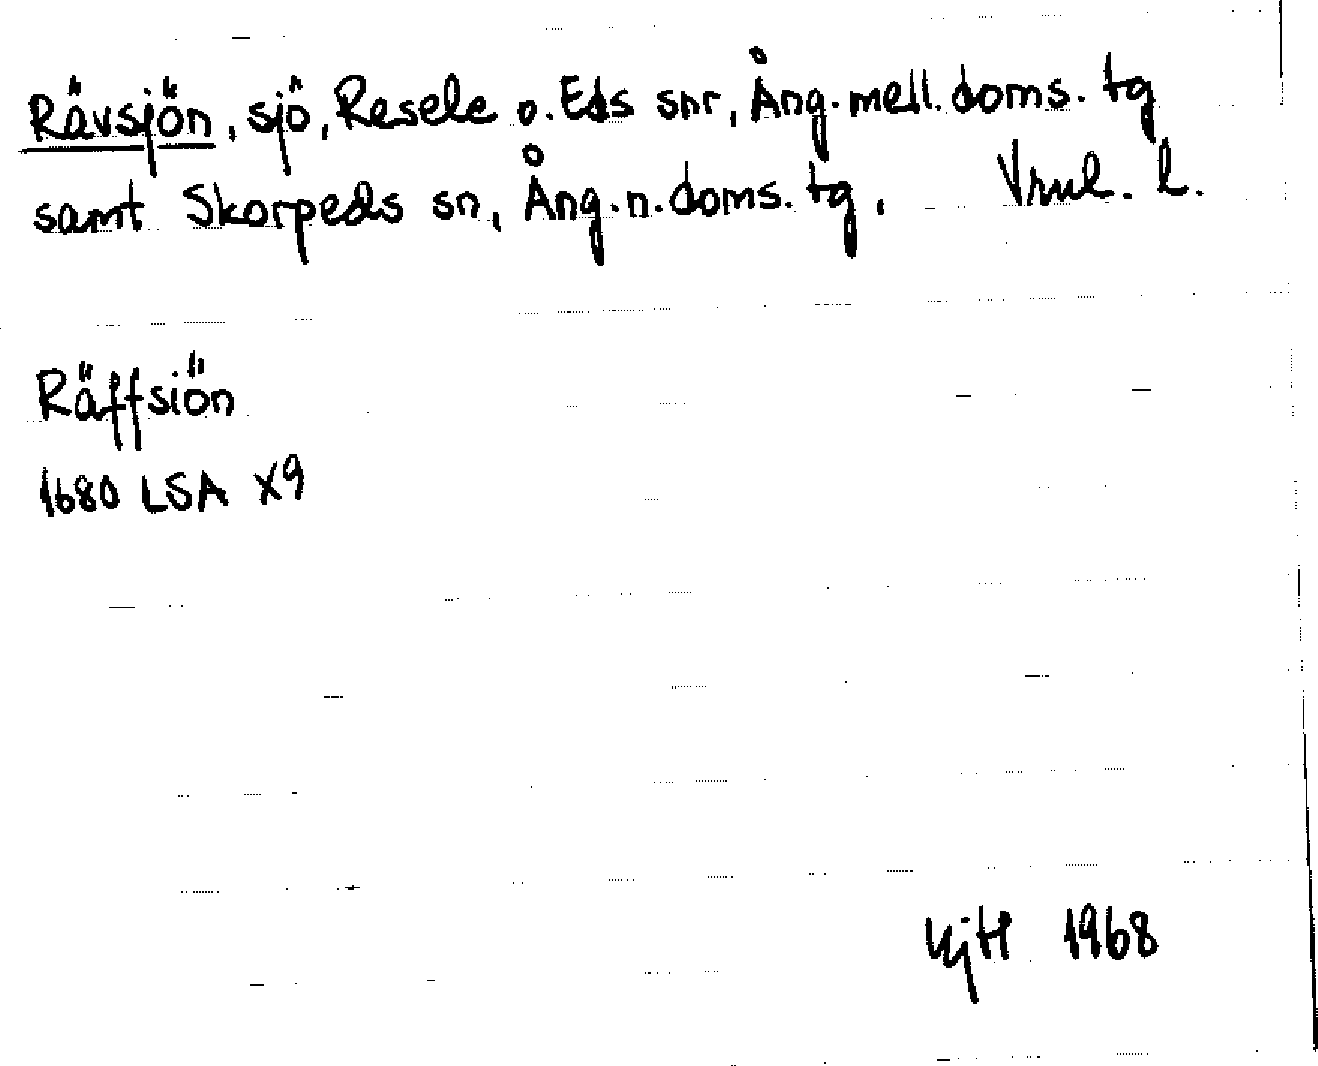 Rävsjön, sjö, Resele o. Eds snr, Ång. mell. doms. tg
samt Skorpeds sn, Ång. n. doms. tg, Vnul. l.
Räffsiön
1680 LSA X9
1968